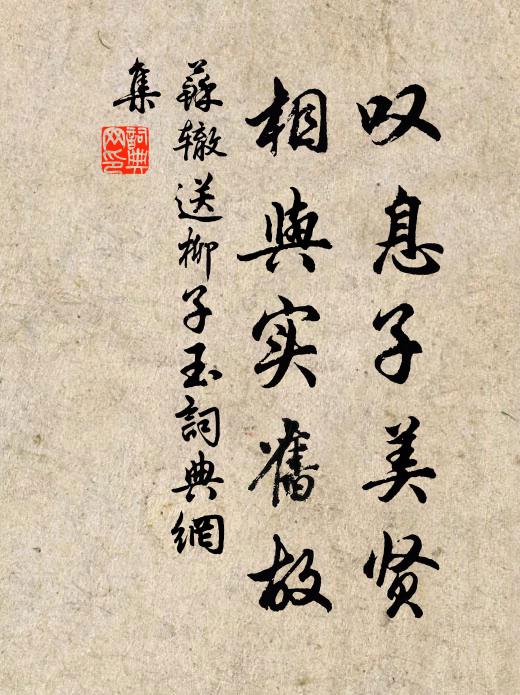 叹息子美贤
相与实旧故
苏辙送柳子玉詞典網
集
詞典
网印